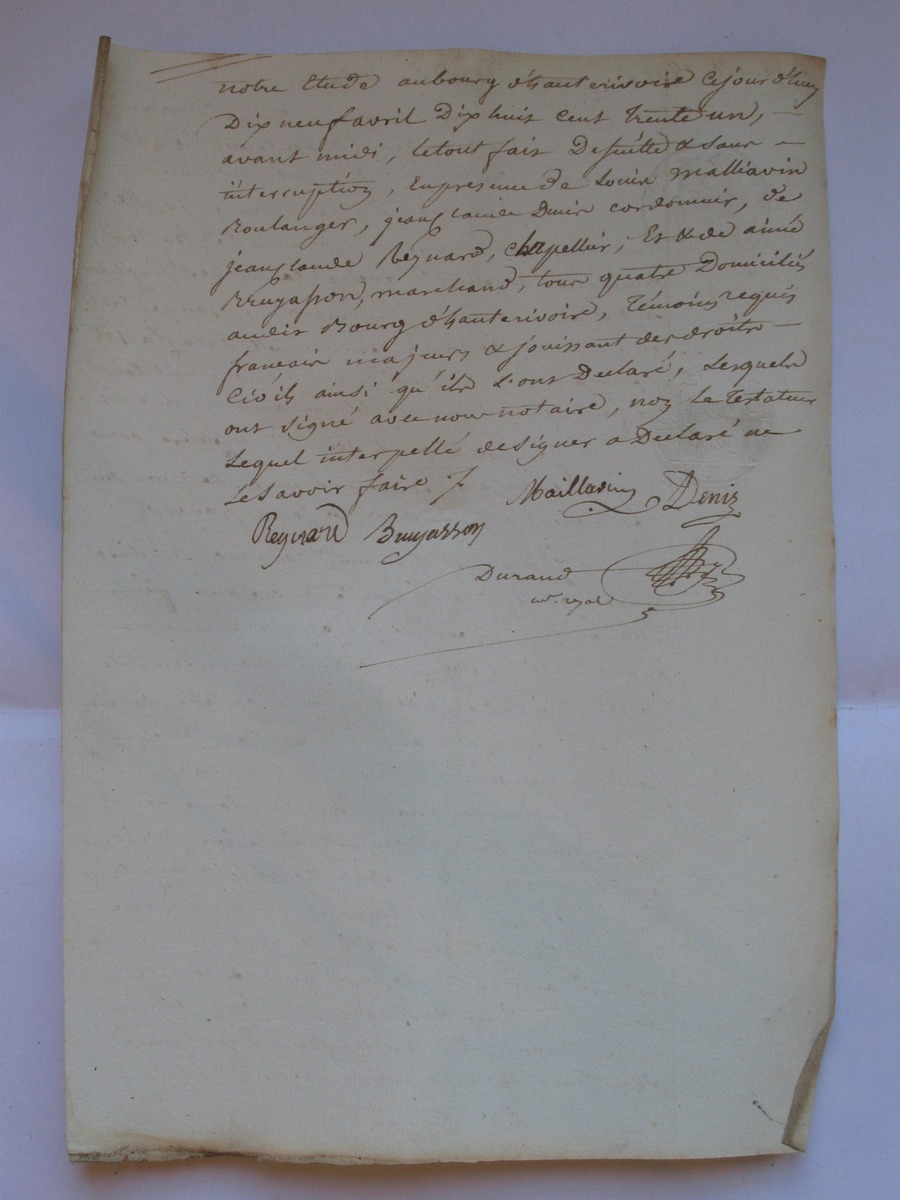 notre Etude aubourg d'hauterivoire cejour d'huy
Dix neuf avril Dix huit cent Trente un, —
avant midi, le tout fait De suitte & sans —
interruption, En presence de Louis Malliavin
Boulanger, jean Claude Denis cordonnier, de
jean Claude Reynard, Chapellier, Et & de aimé
Bruyasson, marchand, tous quatre Domiciliés
audit Bourg d'hauterivoire, Témoins requis
francais majeurs & jouissant des droits —
Civils ainsi qu'ils L'ont Declaré, Lesquels
ont signé avec nous notaire, non Le Testateur
Lequel interpellé designer a Declaré ne
Le savoir faire ./.
Malliavin Denis
Reynard Bruyasson
Durand